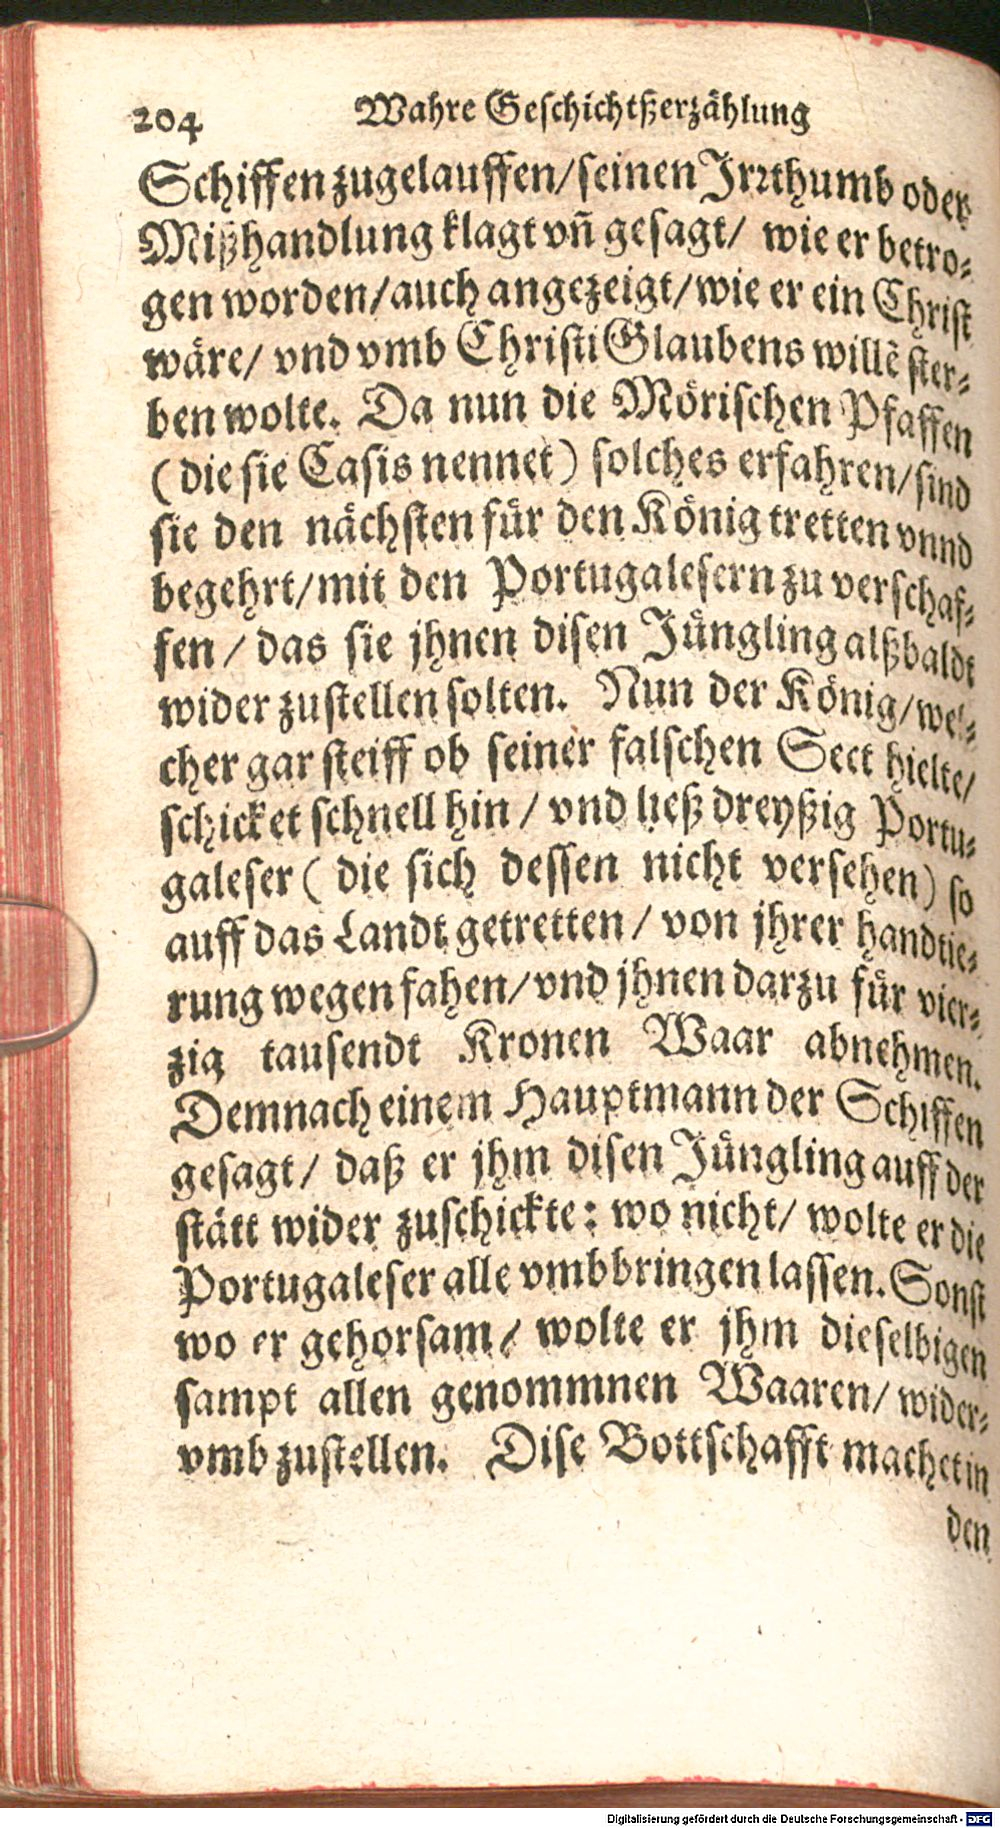 204 Wahre Geschichtßerzählung
Schiffen zugelauffen/seinen Irrthumb oder
Mißhandlung klagt vñ gesagt/ wie er betro-
gen worden/auch angezeigt/wie er ein Christ
wäre/ vnd vmb Christi Glaubens willẽ ster-
ben wolte. Da nun die Mörischen Pfaffen
(die sie Casis nennet) solches erfahren/sind
sie den nächsten für den König tretten vnnd
begehrt/mit den Portugalesern zu verschaf-
fen/ das sie jhnen disen Jüngling alßbaldt
wider zustellen solten. Nun der König/wel-
cher gar steiff ob seiner falschen Sect hielte/
schicket schnell hin/ vnd ließ dreyßig Portu-
galeser (die sich dessen nicht versehen) so
auff das Landt getretten/ von jhrer handtie-
rung wegen fahen/vnd jhnen darzu für vier-
zig tausendt Kronen Waar abnehmen.
Demnach einem Hauptmann der Schiffen
gesagt/ daß er jhm disen Jüngling auff der
stätt wider zuschickte: wo nicht/ wolte er die
Portugaleser alle vmbbringen lassen. Sonst
wo er gehorsam/ wolte er jhm dieselbigen
sampt allen genommnen Waaren/ wider-
vmb zustellen. Dise Bottschafft machet in
den
Digitalisierung gefördert durch die Deutsche Forschungsgemeinschaft - DFG